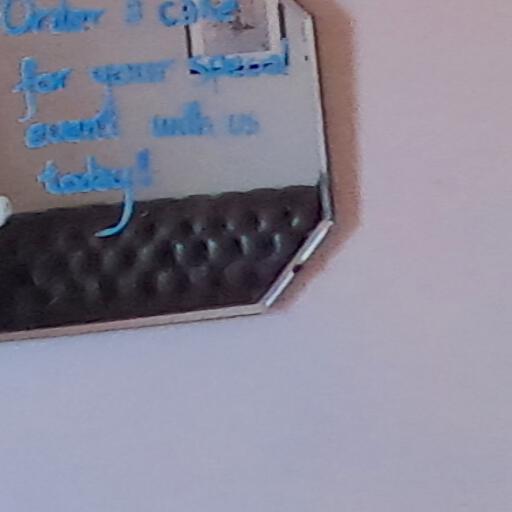 Order a cake
for your special
event with us
today!